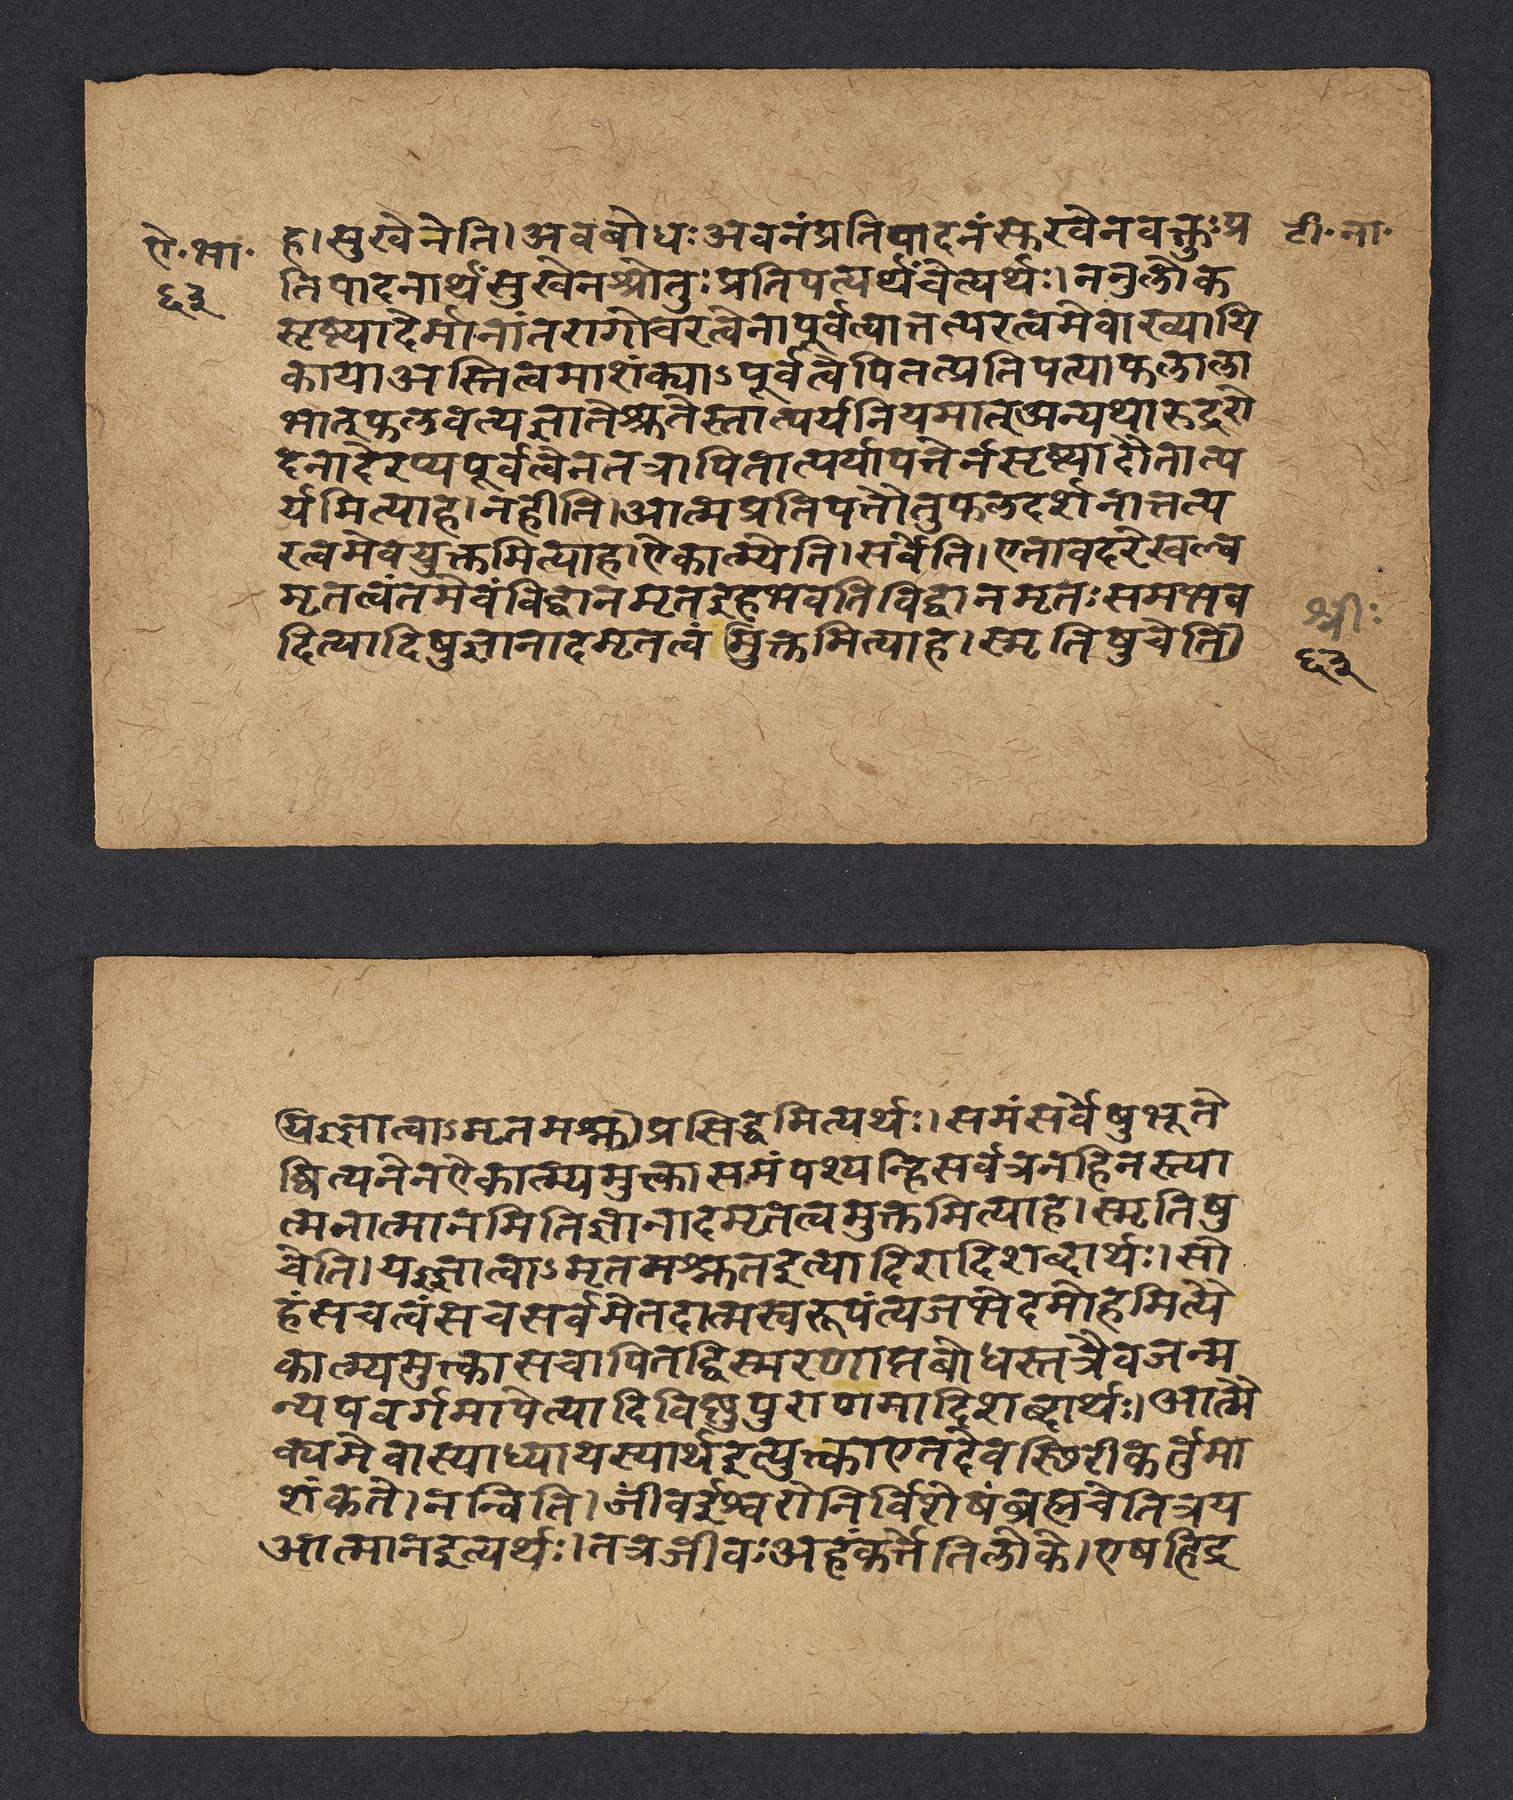 ऐ·भा· ह।सुखेनेति।अवबोधःअवनंप्रतिपादनंस्कखेनवक्तुःप्र टी·ना·
६३ तिपादनार्थंसुखेनश्रोतुःप्रतिपत्यर्थंचेत्यर्थः।ननुलोक
सृष्ट्यादेर्मानांतरागोचरत्वेनापूर्वत्यात्तत्परत्वमेवाख्यायि
कायाअस्तित्वमाशंक्याऽपूर्वत्वेपितत्प्रतिपत्याफलाला
भात्फलवत्यज्ञातेश्रुतेस्तात्पर्यनियमात्अन्यथारुद्ररो
दनादेरप्यपूर्वत्वेनतत्रापितात्पर्यापत्तेर्नसृष्ट्यादौतात्प
र्यमित्याह।नहीति।आत्मप्रतिपत्तौतुफलदर्शनात्तत्प
रत्वमेवयुक्तमित्याह।ऐकात्म्येति।सर्वेति।एतावदरेखल्व
मृतत्वंतमेवंविद्वानमृतइहभवतिविद्वानमृतःसमभव श्रीः
दित्यादिषुज्ञानादमृतत्वंमुक्तमित्याह।स्मृतिषुचेति) ६३
यिज्ज्ञात्वाऽमृतमश्नु)प्रसिद्धमित्यर्थः।समंसर्वेषुभूते
ष्वित्यनेनऐकात्म्यमुक्त्वासमंपश्यन्हिसर्वत्रनहिनस्त्या
त्मनात्मानमितिज्ञानादमृतत्वमुक्तमित्याह।स्मृतिषु
चेति।यज्ज्ञात्वाऽमृतमश्नुतइत्यादिरादिशब्दार्थः।सो
हंसचत्वंसचसर्वमेतदात्मस्वरूपंत्यजभेदमोहमित्यै
कात्म्यमुक्त्वासचापितद्धिस्मरणाप्तबोधस्तत्रैवजन्म
न्यपवर्गमापेत्यादिविष्णुपुराणमादिशब्दार्थः।आत्मै
क्यमेवास्याध्यायस्यार्थइत्युक्त्वाएतदेवस्थिरीकर्तुमा
शंकते।नन्विति।जीवईश्वरोनिर्विशेषंब्रह्मचेतित्रय
आत्मानइत्यर्थः।तत्रजीवःअहंकर्त्तेतिलोके।एषहिद्र